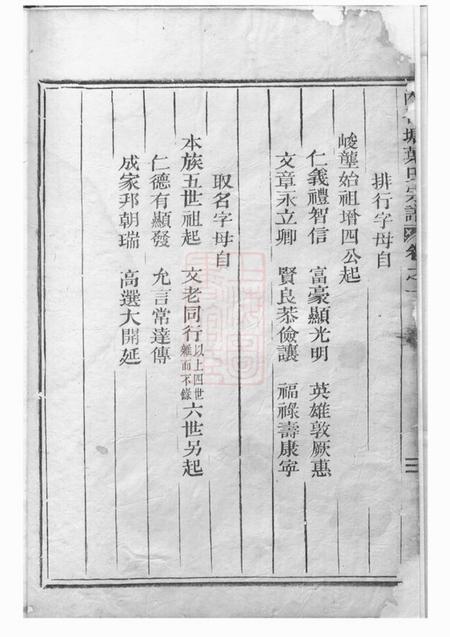 排行字母自
峻壟始祖增四公起
仁義禮智信 富豪顯光明 英雄敦厥惠
文章永立卿 賢良恭儉讓 福祿壽康寧
取名字母自
本族五世祖起 文老同行以上四世雜而不錄六世另起
仁德有顯發 允言常達傳
成家邦朝瑞 高選大開延
塘葉氏宗譜 卷之一
三